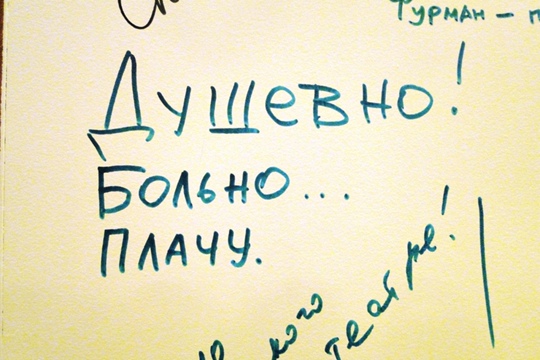 Фурман –
Душевно!
Больно...
плачу.
театре!